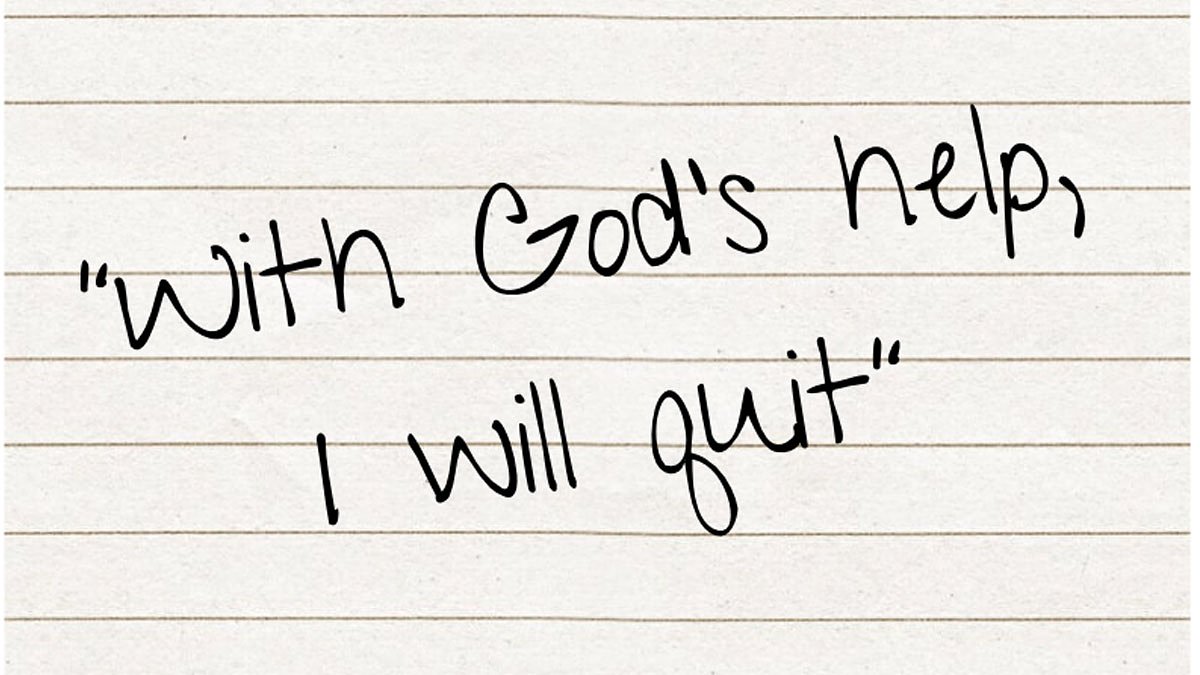 "With God's help,
I will quit"